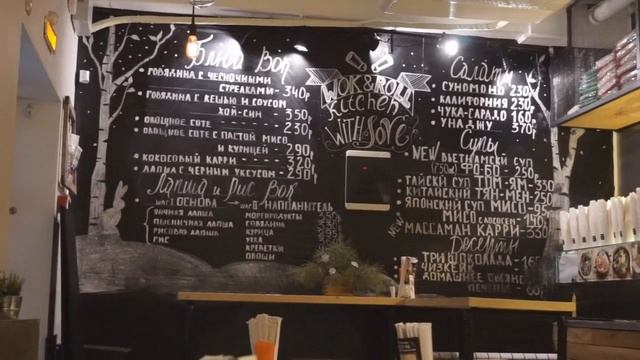 Блюда Вок
• говядина с чесночными
стрелками- 340р
говядина с кешью и соусом
хой-син- 350
• овощное соте - 230
• овощное соте с пастой мисо
и курицей - 290
• кокосовый карри - 320
• лапша с черным уксусом- 250
Лапша и Рис Вок
шаг 1 основа шаг 2 наполнитель
яичная лапша
пшеничная лапша
рисовая лапша
рис
морепродукты
говядина
курица
утка
креветки
овощи
WOK & ROLL
Kitchen
WITH Love
Салаты
• суномоно 230
• калифорния 230
• чука-сарадо 160
• унаджу 370р
Супы
NEW вьетнамский суп
фо-бо - 250
• тайски суп том-ям- 330
• китайский тян-мен- 250
• японский суп мисо-
мисо с лососем- 190
NEW
• массаман карри- 330
Десерты
три шоколада-
чизкейк
домашнее
печенье - 60р